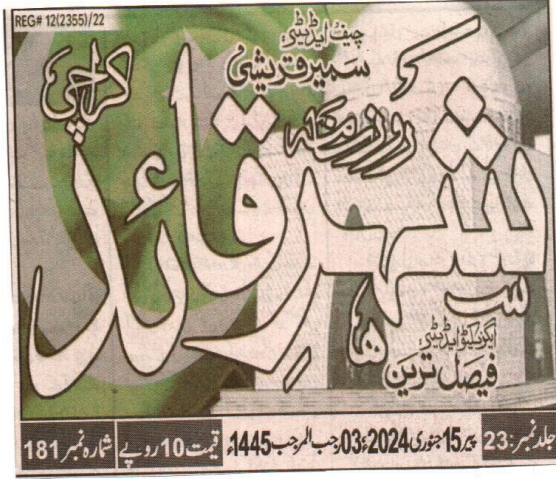 REG# 12(2355)/22
چیف ایڈیٹر:
سمیر قریشی
کراچی
روزنامہ
شہرِ قائد
ایگزیکٹو ایڈیٹر:
فیصل ترین
جلد نمبر:23 پیر 15 جنوری 2024ء 03 رجب المرجب 1445ھ قیمت 10 روپے شمارہ نمبر 181